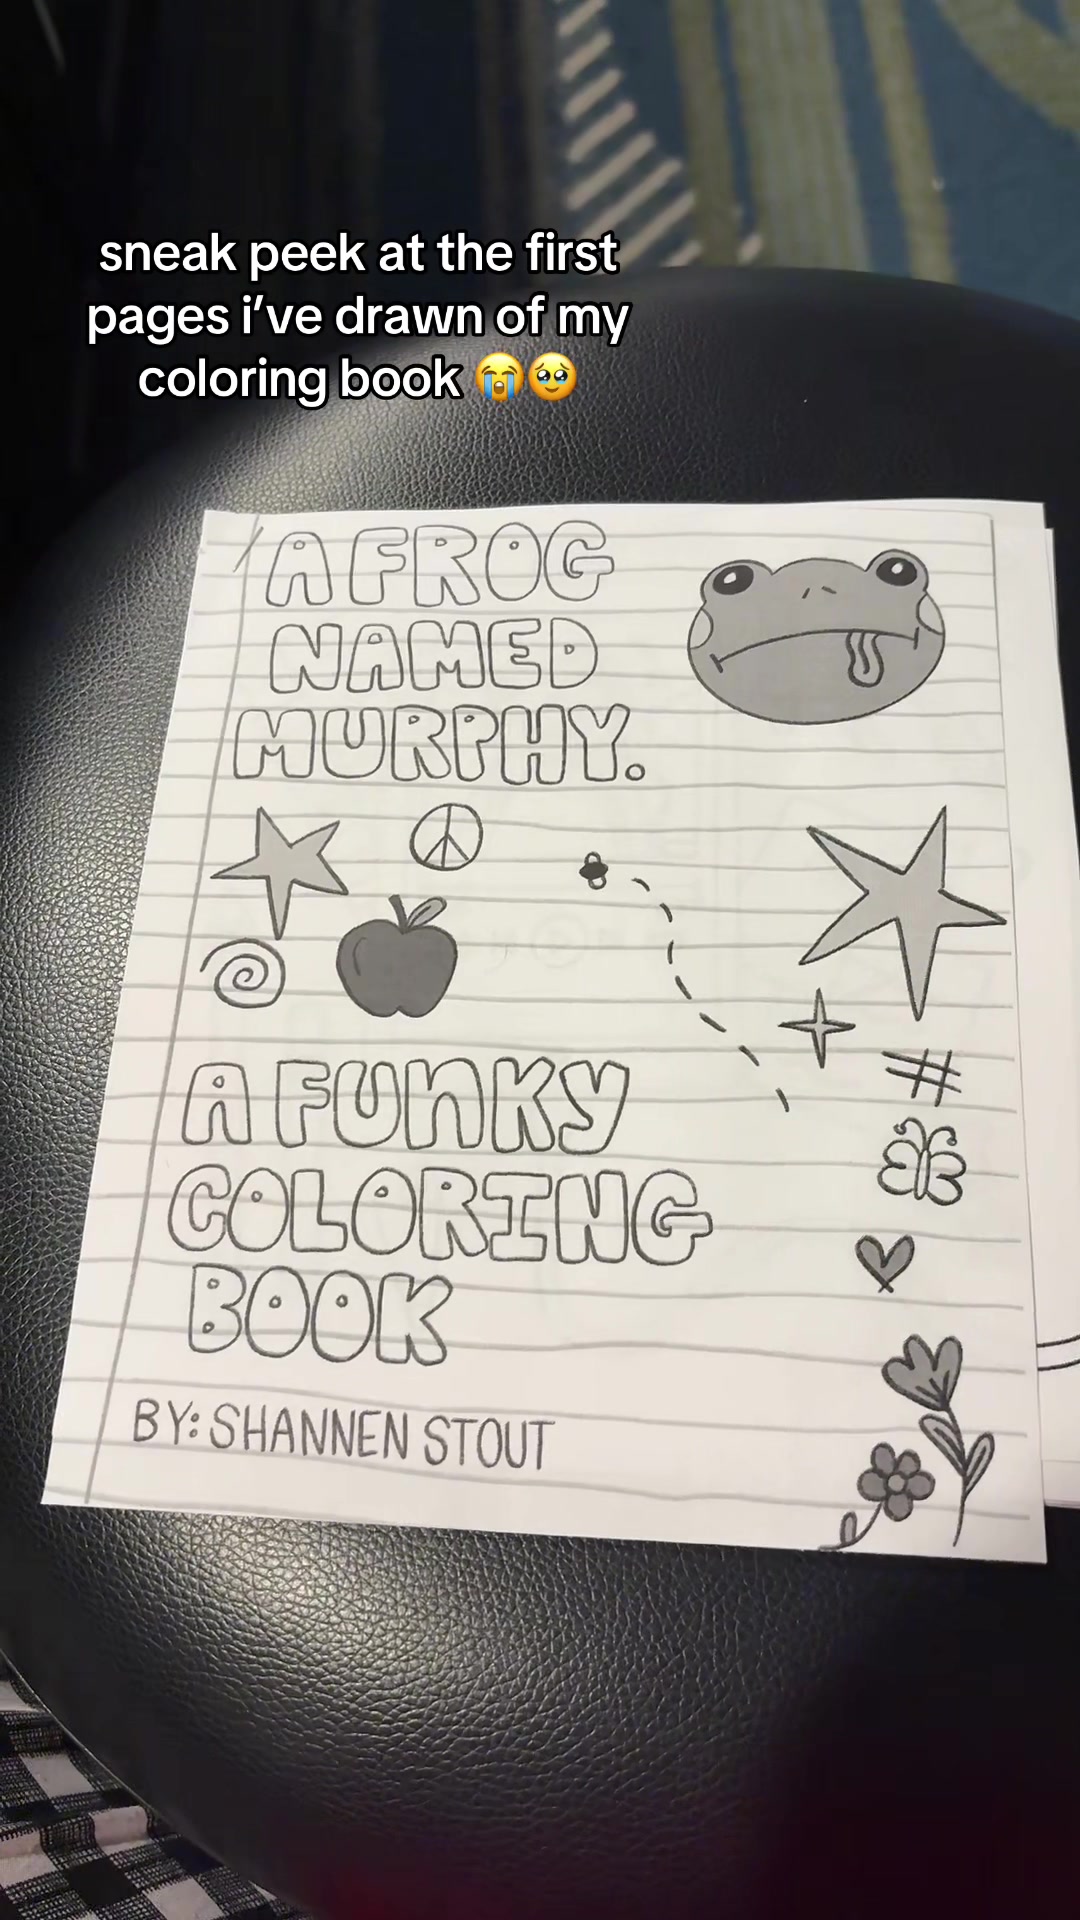 sneak peek at the first
pages i've drawn of my
coloring book 😭🥹
A FROG
NAMED
MURPHY.
#
A FUNKY
COLORING
BOOK
BY: SHANNEN STOUT